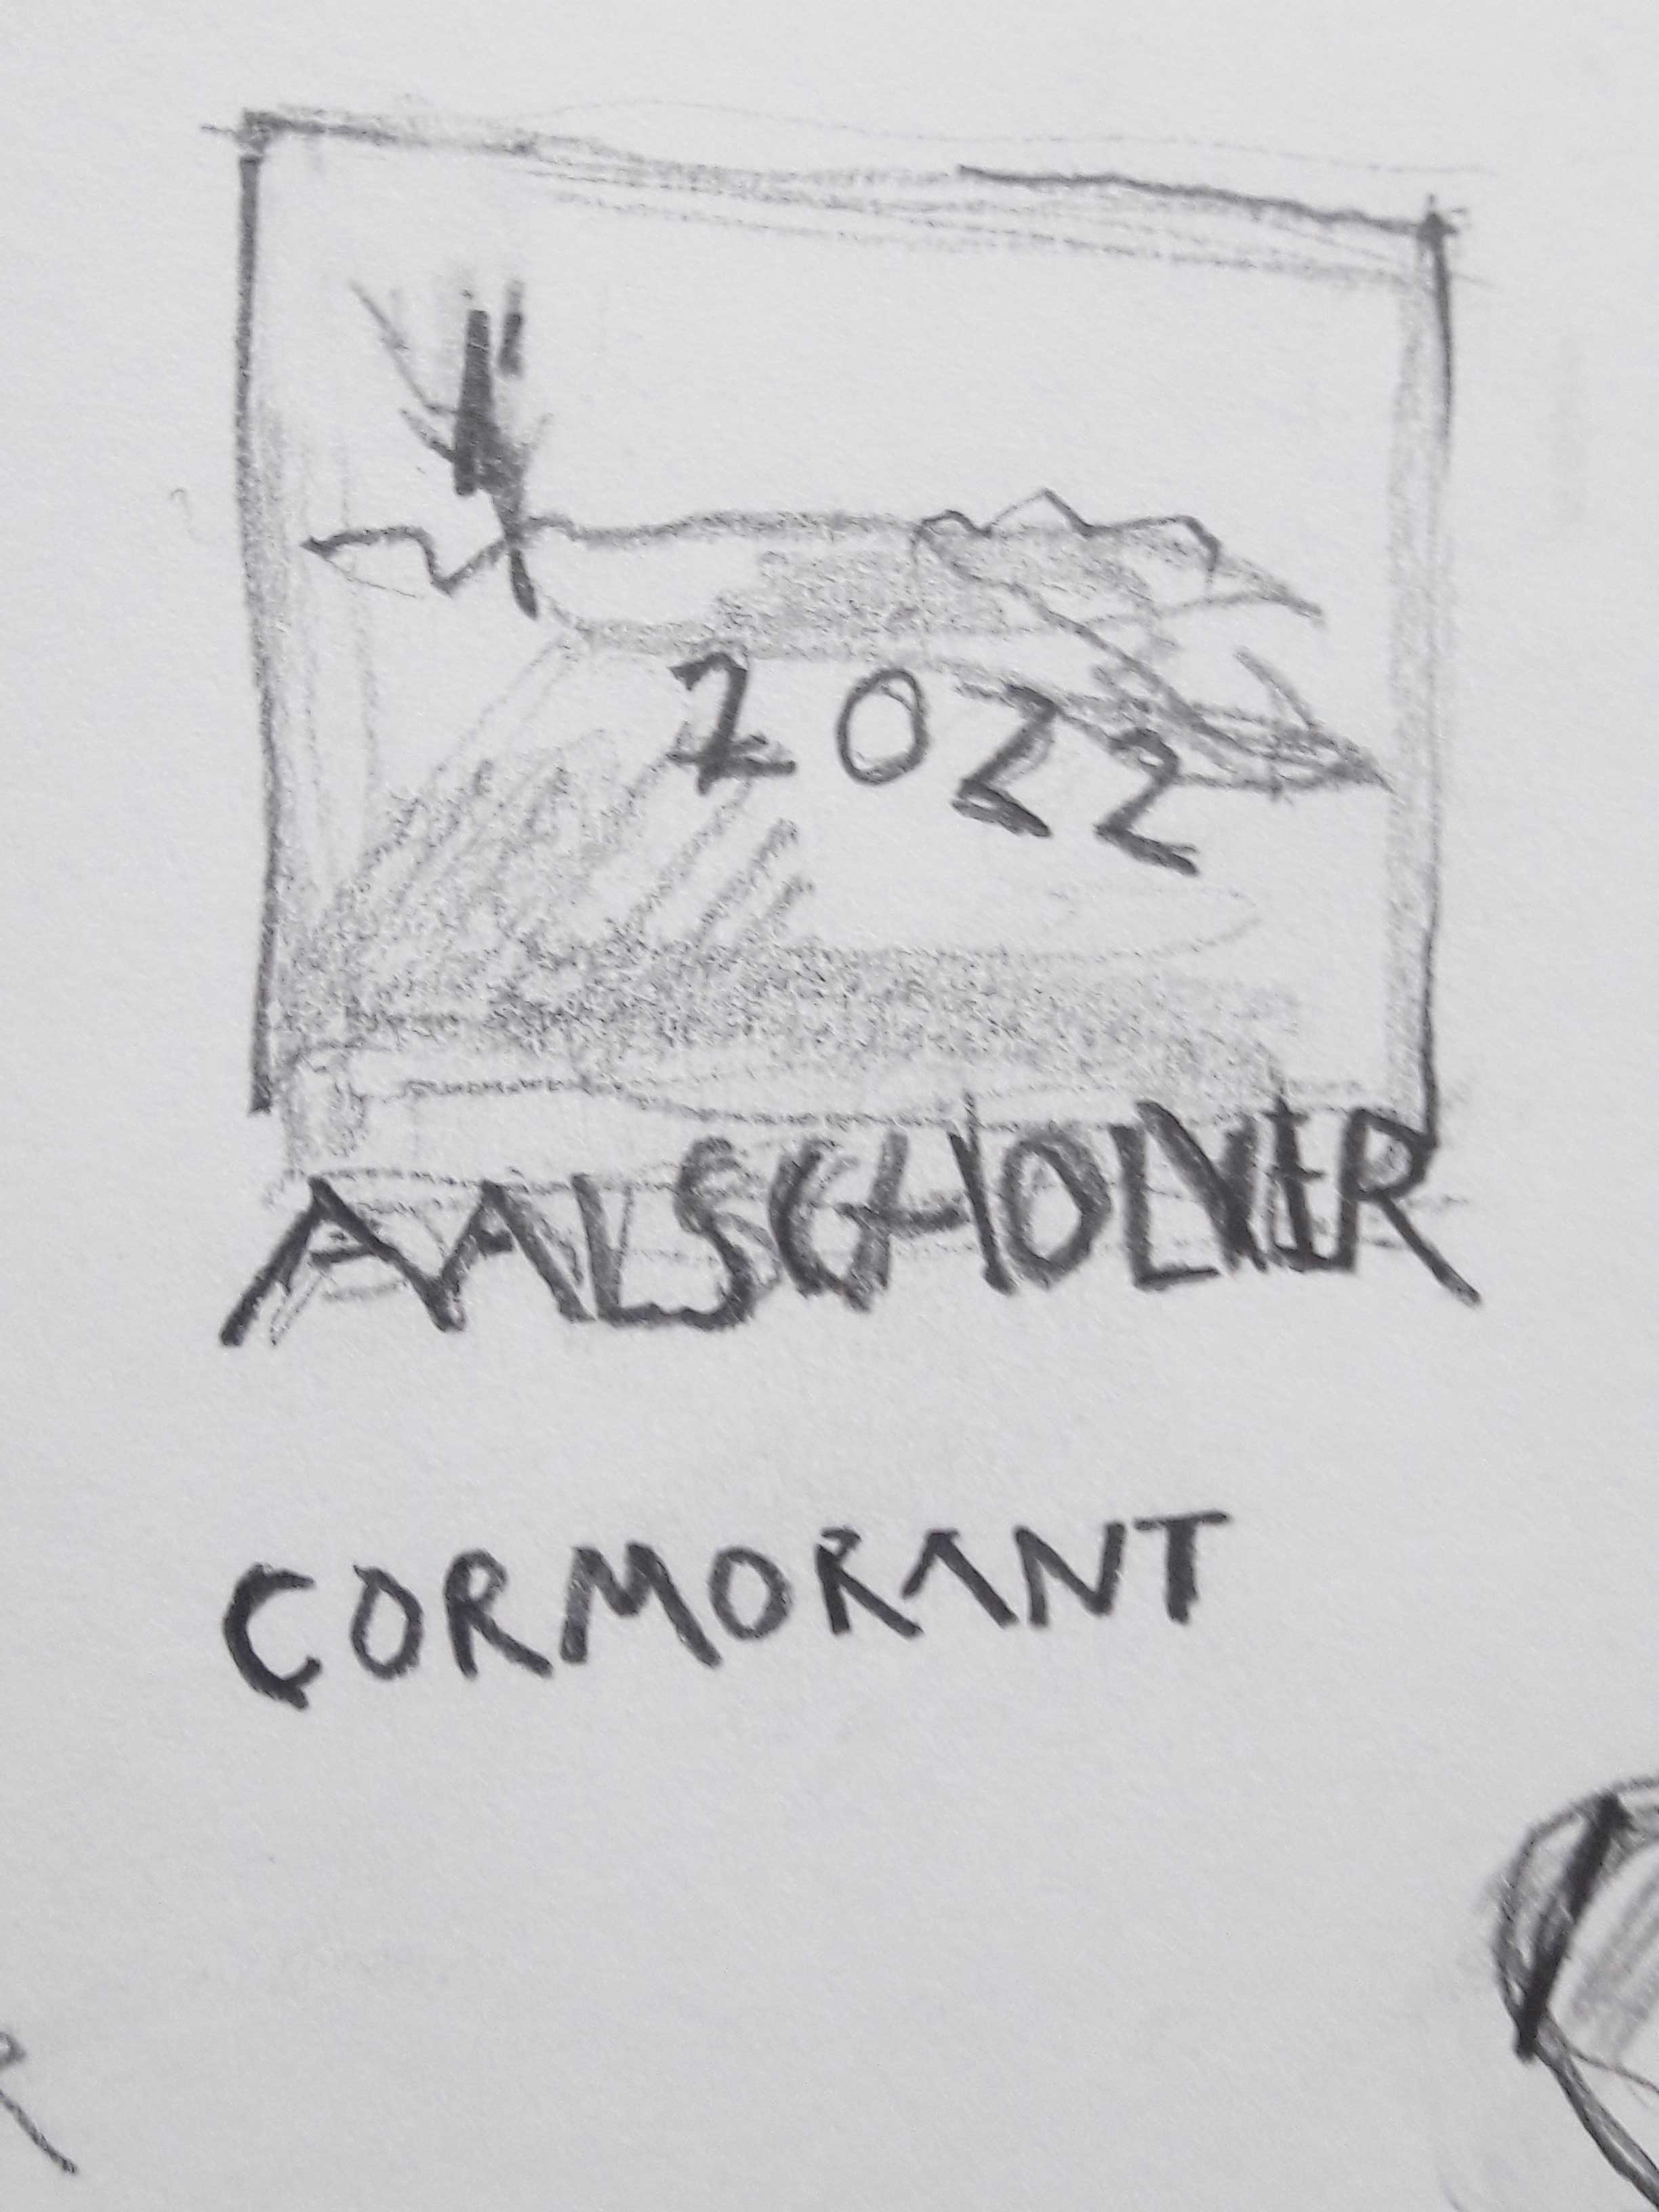 2022
AALSCHOLVER
CORMORANT
R